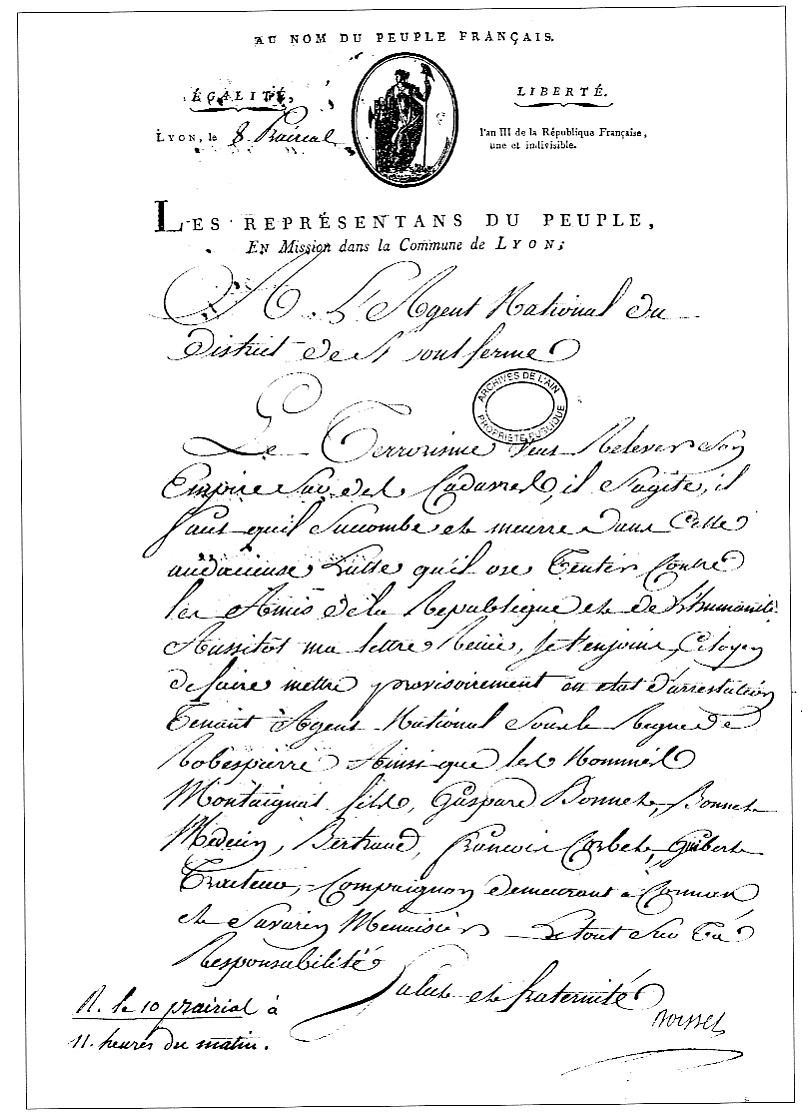 AU NOM DU PEUPLE FRANÇAIS.
ÉGALITÉ,
LIBERTÉ.
LYON, le 8. Prairial
l'an III de la République Française,
une et indivisible.
LES REPRÉSENTANS DU PEUPLE,
EN Mission dans la Commune de LYON;
A L'Agent National du
District de
ARCHIVES DE L'AIN
PROPRIETE PUBLIQUE
Le Terrorisme veut Relever Son
Empire Sur des Cadavres, il S'agite, il
faut qu'il Succombe et meurre dans Cette
audacieuse Lutte qu'il ose Tenter Contre
les Amis de la Republique et de L'humanité.
Aussitot ma lettre Reçüe, Je t'enjoins, Citoyen
de faire mettre provisoirement en état d'arrestation
Tenant Agent National Sous le Regne de
Robespierre Ainsi que les Nommés
Montaignat fils, Gaspard Bonnet, Bonnet
Medecin, Bertrand, francois Corbet, Guibert
Traiteur, Compaignon demeurant à
et Savarin Menuisier Le tout Sur Ta
Responsabilité
Salut et fraternité
Boisset
R. le 10 prairial à
11. heures du matin.